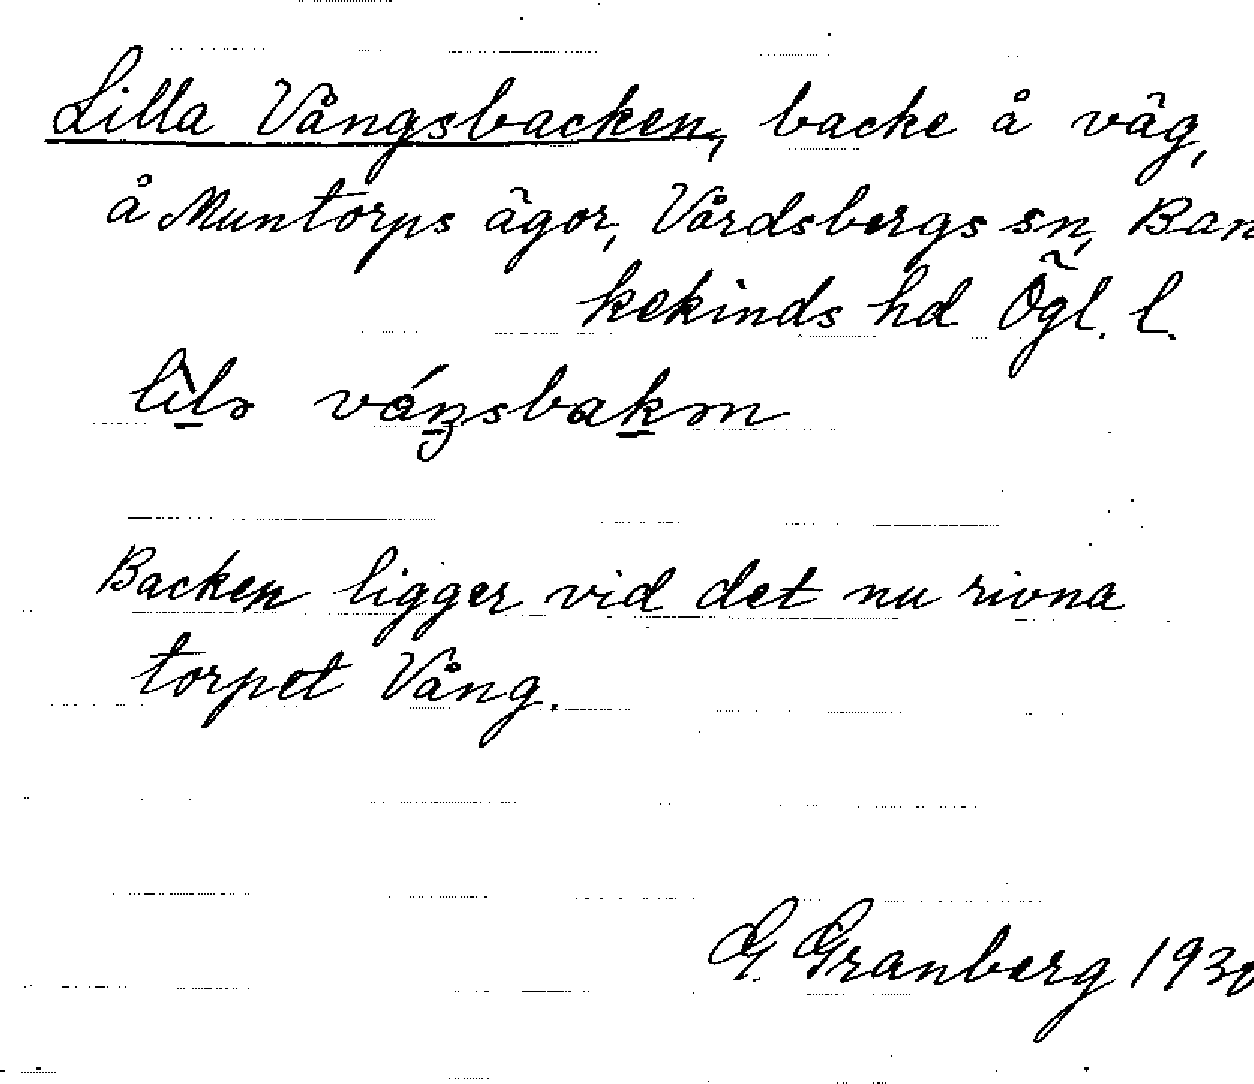 Lilla Vångsbacken, backe å väg,
å Muntorps ägor, Vårdsbergs sn, Ban
kekinds hd Ögl. l.
Backen ligger vid det nu rivna
torpet Vång.
G. Granberg 1930